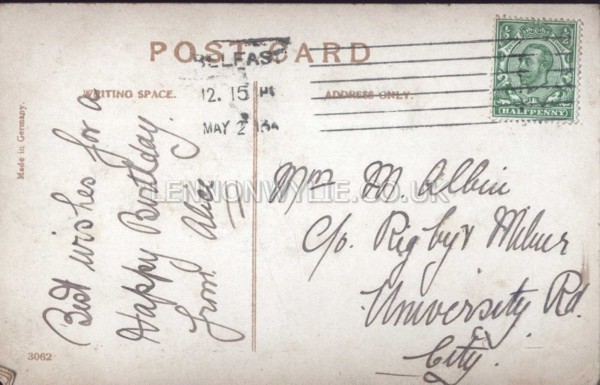 POST CARD
BELFAST
12. 15 PM
MAY 2 13
WRITING SPACE.
ADDRESS ONLY.
HALFPENNY
Made in Germany.
Best wishes for a
Happy Birthday.
from Alice
LENNONWYLIE.CO.UK
M. Albin
c/o Rigby & Milner
University Rd.
City.
3062